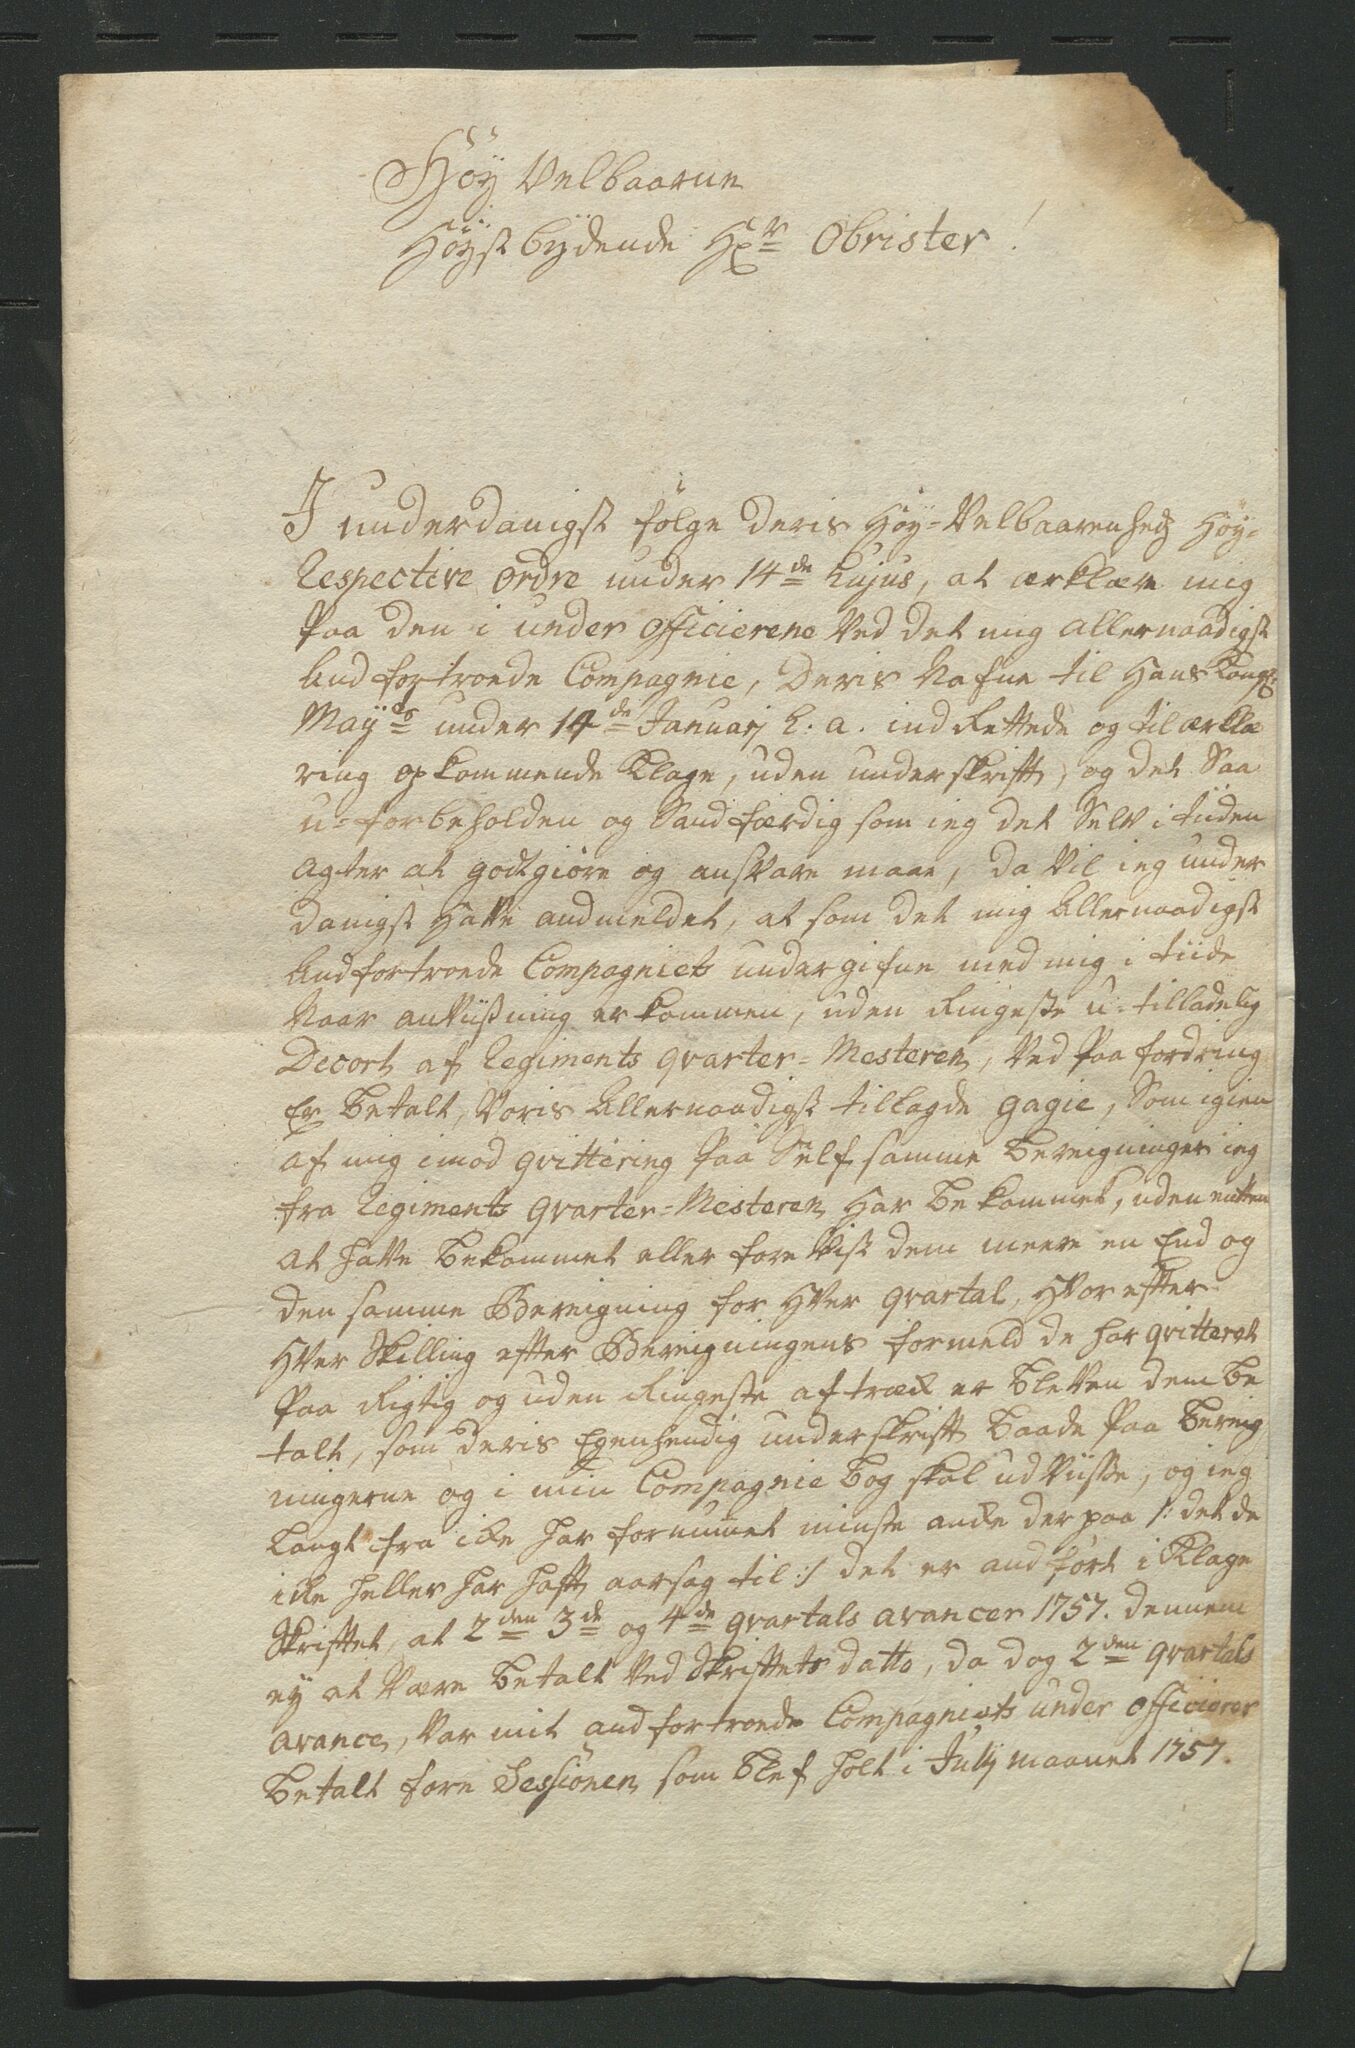 Høy Velbaarne
Høystbydende Hr Obrister!
I underdanigst følge deris Høy-Velbaarenheds Høy-
Respective Ordre under 14de hujus, at ærklære mig
Paa den i under Officierene Ved det mig allernaadigst
Andfortroede Compagnie, Deris Nafne til Hans Kongl:
Mayts under 14de Januarj h. a. indRettede og til ærklæ
ring op kommende Klage, uden underskrift, og det Saa
u-forbeholden og Sandfærdig som ieg det Selv i tiiden
agter at godtgiøre og ansvare maae, da Vil ieg under
danigst Hafve andmeldet, at som det mig Allernaadigst
Andfortroede Compagniets undergifne med mig i tiide
Naar anViisning er kommen, uden Ringeste u-tilladelig
Decort af Regiments Qvarter-Mesteren, Ved Paafordring
Er betalt, Voris Allernaadigst tillagde gagie, Som igien
af mig imod qvittering Paa Self samme bereigninger ieg
fra Regiments Qvarter-Mesteren Har bekommet, uden enten
at hafve bekommet eller foreVist dem meere en End og
den samme Bereigning for Hver qvartal, Hvor efter
Hver Skilling efter Bereigningens formeld de har qvitteret
Paa Rigtig og uden Ringeste aftræk er bleVen dem be
talt, som deris Egenhendig underskrift baade Paa bereig
ningerne og i min Compagnie bog skal udViisse, og ieg
langt fra icke har fornummet minste anke der paa /: det de
icke heller har haft aarsag til :/ det er andført i Klage
Skriftet, at 2den 3de og 4de qvartals avancer 1757. dennem
ey at Være betalt Ved Skriftets datto, da dog 2den qvartals
avance, Var mit andfortroede Compagniets under officierer
betalt fore Sessionen som blef holt i July maanet 1757.